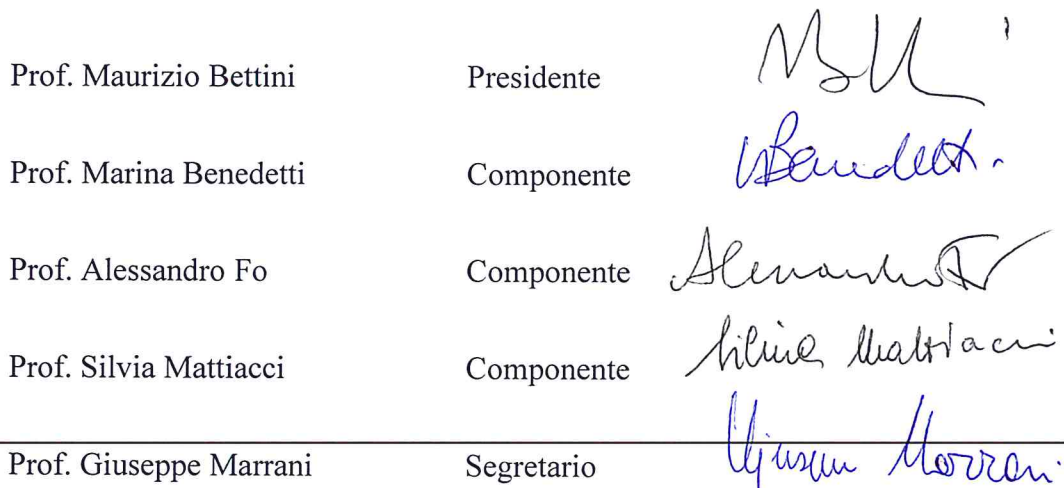 Prof. Maurizio Bettini Presidente
Prof. Marina Benedetti Componente MBenedetti.
Prof. Alessandro Fo Componente Alessandro Fo
Prof. Silvia Mattiacci Componente Silvia Mattiacci
Prof. Giuseppe Marrani Segretario Giuseppe Marrani